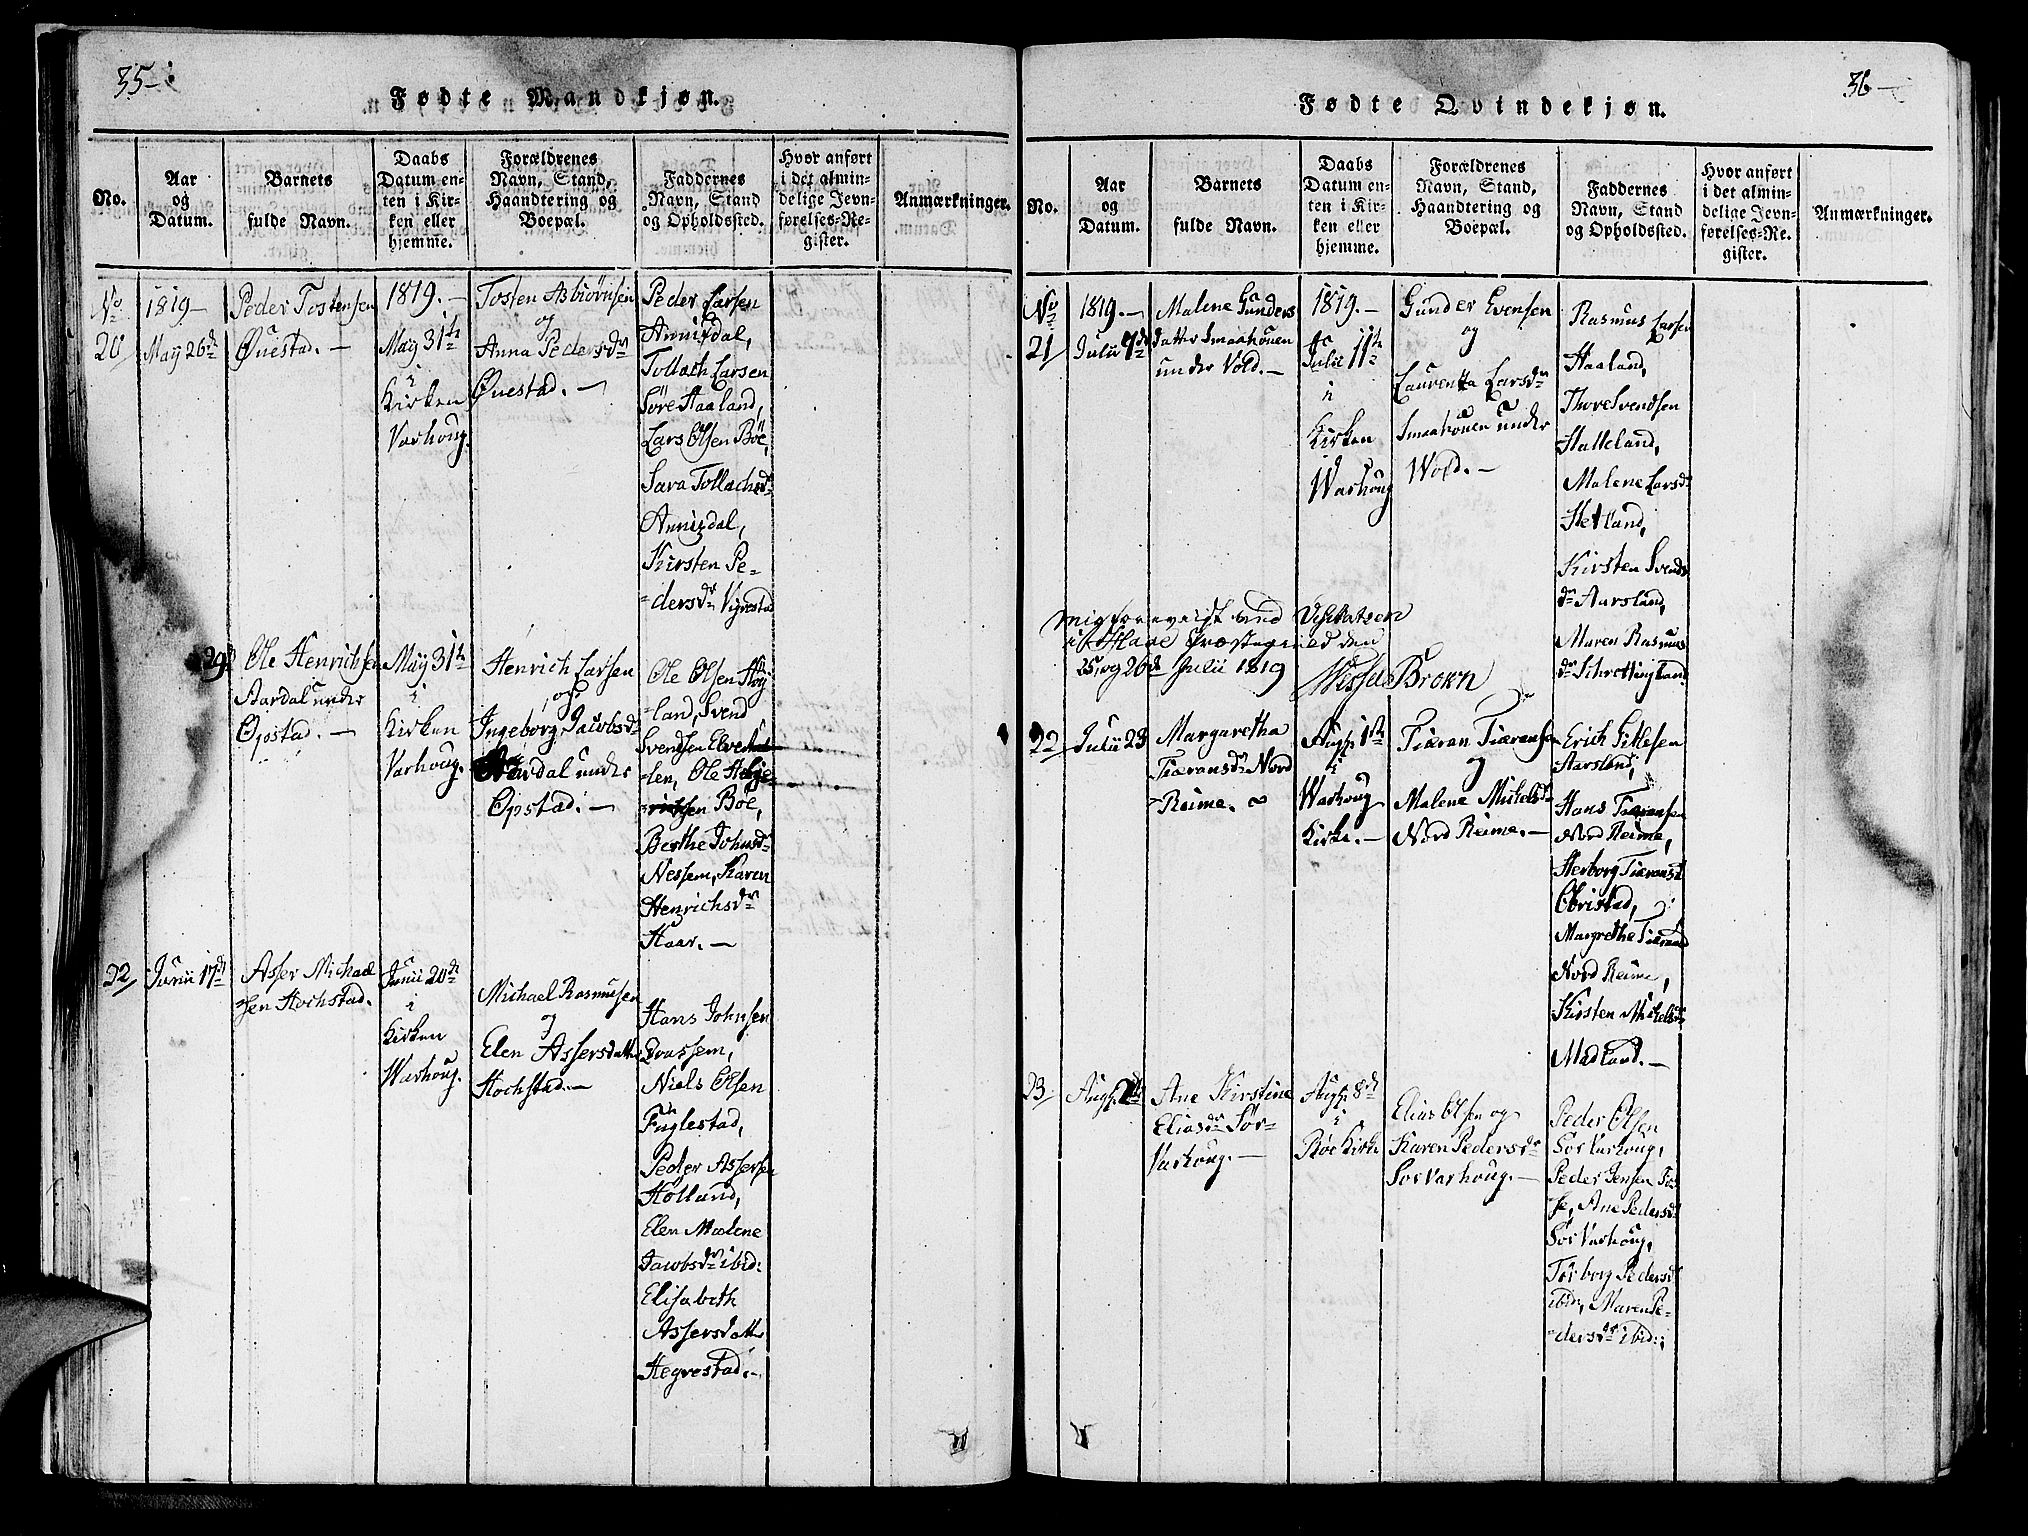 35-
Fødte Mandkjøn.
No.
Aar
og
Datum.
Barnets
fulde Navn.
Daabs
Datum en-
ten i Kir-
ken eller
hjemme.
Forældrenes
Navn, Stand,
Haandtering og
Boepæl.
Faddernes
Navn, Stand
og Opholdssted.
Hvor anført
i det almin-
delige Jevn-
førelses-Re-
gister.
Anmærkninger.
No
20
1819-
May 26de
Peder Tostensen
Øuestad.-
1819.-
May 31te
i
Kirken
Varhoug.
Tosten Asbiörnsen
og
Anna Pedersdr
Øuestad.-
Peder Larsen
Annisdal,
Tollach Larsen
Söre Haaland,
Lars Olsen Böe,
Sara Tollachsdr
Annisdal,
Kirsten Pe-
=dersdr Vigrestad
Ole Henrichsen
Aardal under
Opstad.-
May 31te
i
Kirken
Varhoug.
Henrich Larsen
og
Ingeborg Jacobsdr
Aardal under
Opstad.-
Ole Olsen Höy
=land, Svend
Svendsen
len, Ole
Böe,
Berthe Johnsdr
Nessem, Karen
Henrichsdr
Haar.-
22/
Junii 17de
Asser Michael
sen Hochstad.
Junii 20de
i
Kirken
Warhoug.
Michael Rasmusen
og
Elen Assersdatter
Hochstad.-
Hans Johnsen
Qvassem,
Niels Olsen
Fuglestad,
Peder Assersen
Hölland,
Elen Malene
Jacobsdr ibid:
Elisabeth
Assersdatter
Hegrestad.-
36-
Fødte Qvindekjøn.
No.
Aar
og
Datum.
Barnets
fulde Navn.
Daabs
Datum en-
ten i Kir-
ken eller
hjemme.
Forældrenes
Navn, Stand,
Haandtering og
Boepæl.
Faddernes
Navn, Stand
og Opholdssted.
Hvor anført
i det almin-
delige Jevn-
førelses-Re-
gister.
Anmærkninger.
No
21
1819.-
Julii 7de
Malene Gunders
datter Smaahouen
under Vold.-
1819.-
Julii 11te
i
Kirken
Warhoug
Gunder Evensen
og
Laurentta Larsdr
Smaahouen under
Wold.-
Rasmus Larsen
Haaland,
Thore Svendsen
Halleland,
Malene Larsdr
Hetland,
Kirsten Svends
dr Aarsland,
Maren Rasmus
dr Schrettingland
Mig foreviist ved Visitatsen
i Haae Præstegield den
25 og 26de Julii 1819
22/
Julii 23
Margaretha
Tiæransdr Nord
=Reime.
Augh. 1te
i
Warhoug
Kirke.-
Tiæran Tiæransen
og
Malene Mickelsdr
Nord Reime.-
Erich Sitlesen
Aarsland,
Hans Tiæransen
Nord Reime,
Herborg Tiæransd
Obristad,
Margrethe Tiæransd
Nord Reime,
Kirsten Mickelsdr
Madland.-
23/
Ane Kirstine
Eliasdr Sör-
Varhoug.-
8de
i
Böe Kirke
Elias Olsen og
Karen Pedersdr
Sör Varhoug.-
Peder Olsen
Sör Varhoug,
Peder Jensen Tos
se, Ane Pedersdr
Sör Varhoug,
Torborg Pedersd
ibid:, Maren Pe-
=dersdr ibid:,